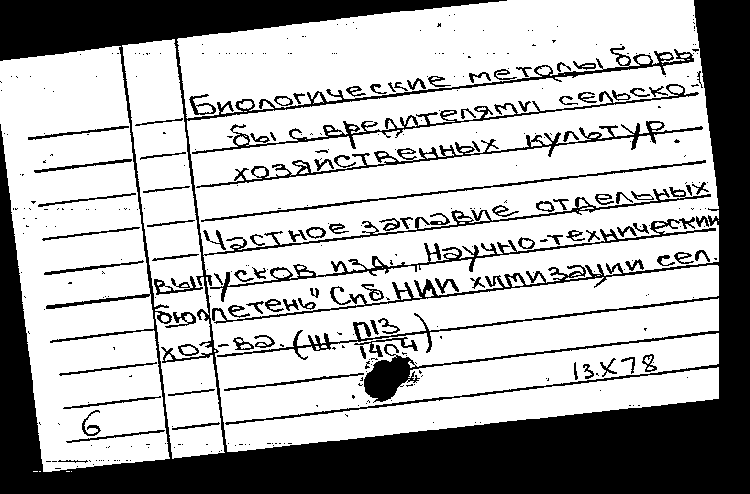 Биологические методы борь-
бы с вредителями сельско-
хозяйственных культур.
Частное заглавие отдельных
выпусков изд.: „Научно-технический
бюллетень" Спб. НИИ химизации сел.
хоз-ва. (Ш: П13/1404).
13.X 78
6